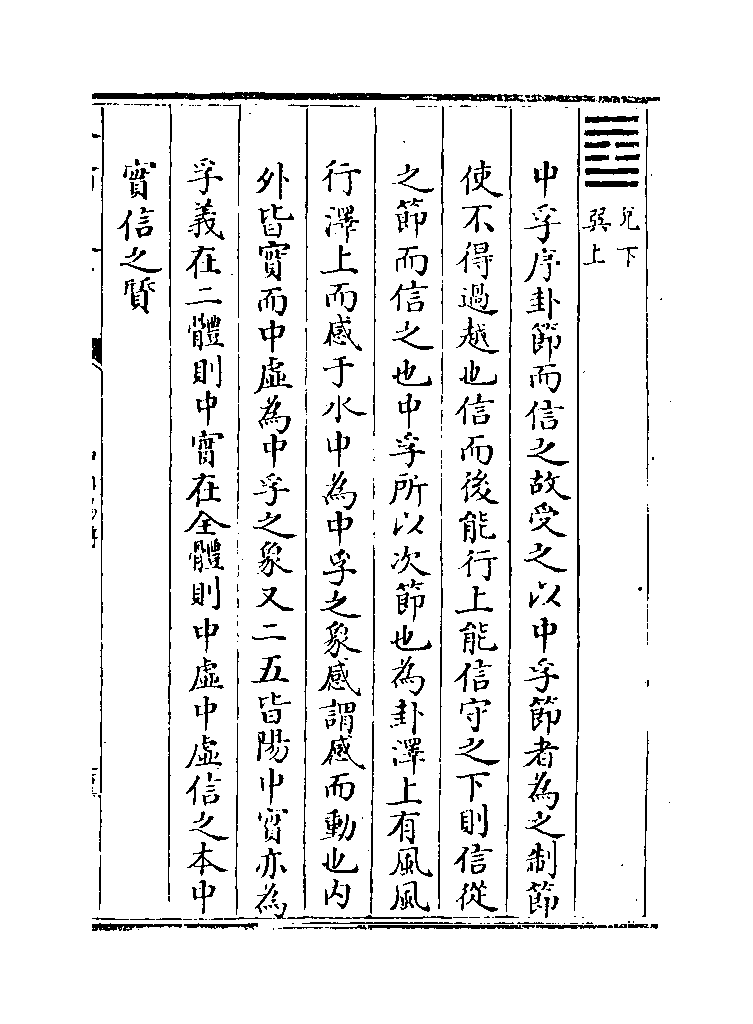 ䷼
兌下
巽上
中孚序卦節而信之故受之以中孚節者為之制節
使不得過越也信而後能行上能信守之下則信從
之節而信之也中孚所以次節也為卦澤上有風風
行澤上而感于水中為中孚之象感謂感而動也内
外皆實而中虛為中孚之象又二五皆陽中實亦為
孚義在二體則中實在全體則中虛中虛信之本中
實信之質